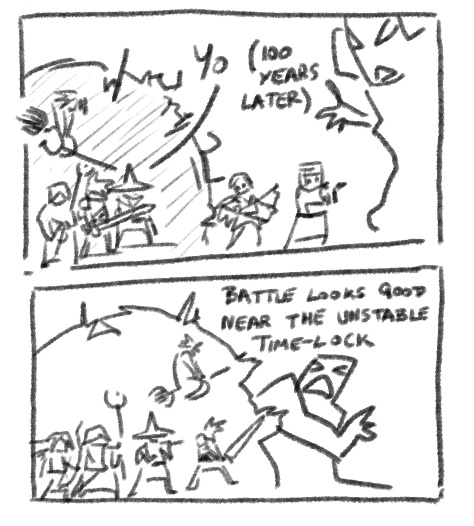 YO (100
YEARS
LATER)
BATTLE LOOKS GOOD
NEAR THE UNSTABLE
TIME-LOCK